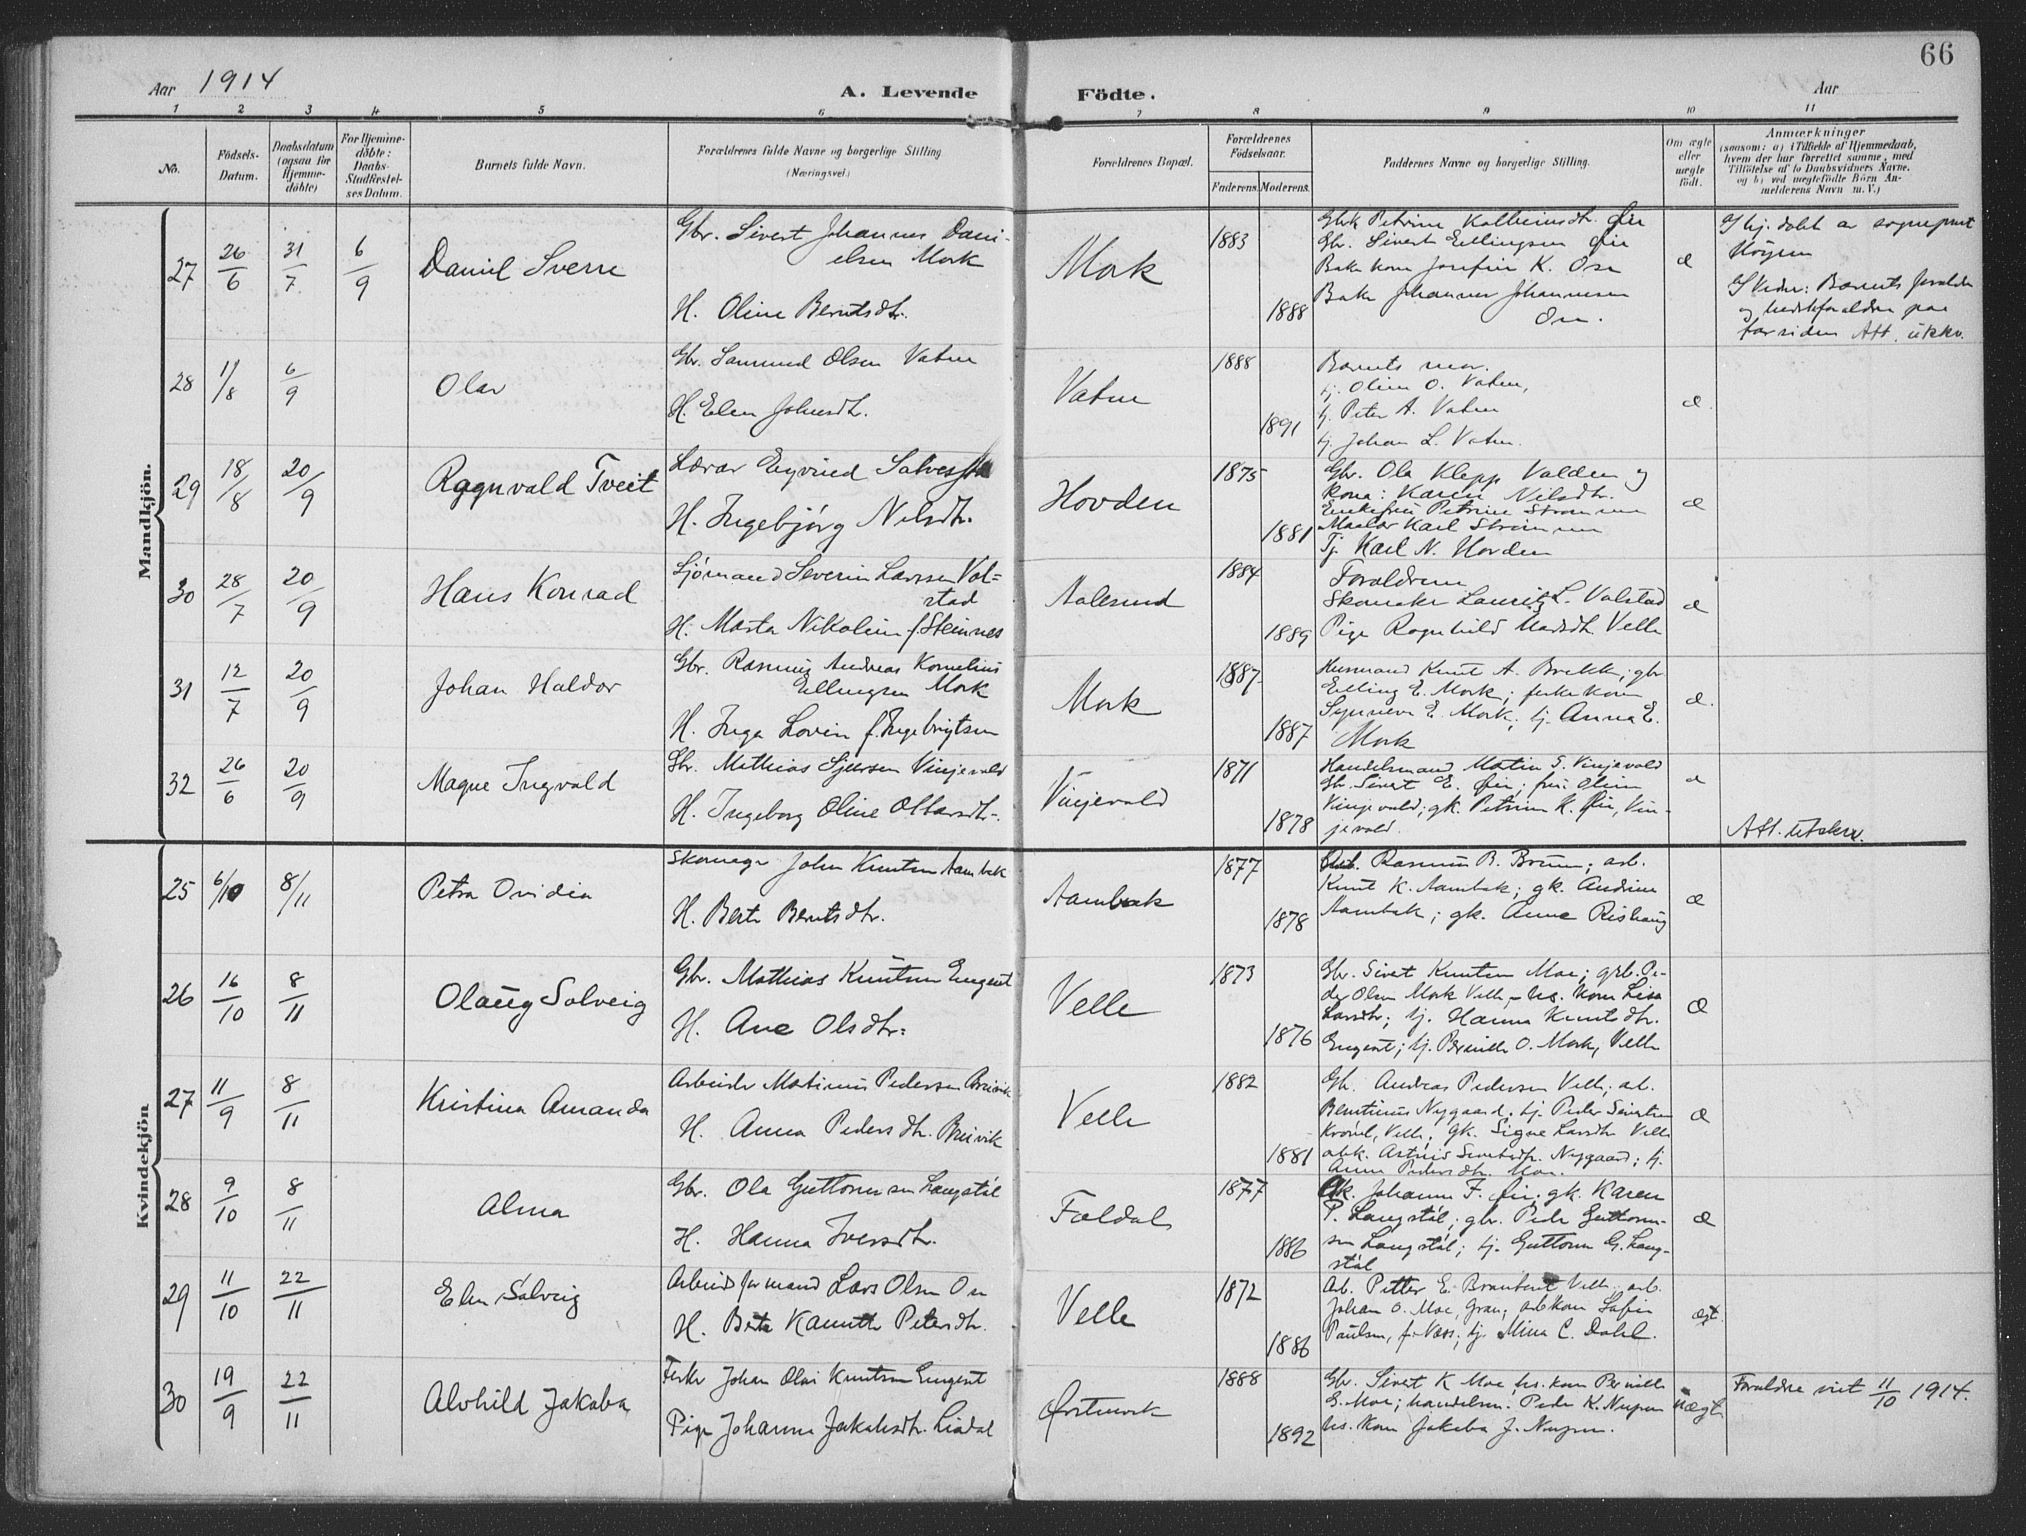 66
Aar 1914 A. Levende Födte. Aar
1 2 3 4 5 6 7 8 9 10 11
No.
Födsels-
Datum.
Daabsdatum
(ogsaa for
Hjemme-
döbte)
For Hjemme-
döbte:
Daabs-
Stadfæstel-
ses Datum.
Barnets fulde Navn.
Forældrenes fulde Navne og borgerlige Stilling
(Næringsvei.)
Forældrenes Bopæl.
Forældrenes
Födselsaar.
Faderens. Moderens.
Faddernes Navne og borgerlige Stilling.
Om ægte
eller
uægte
födt.
Anmærkninger
(saasom: a) i Tilfælde af Hjemmedaab,
hvem der har forrettet samme, med
Tilföielse af to Daabsvidners Navne.
og b) ved uægtefödte Börn An-
melderens Navn m. V.)
Mandkjön.
27 26/6 31/7 6/9 Daniel Sverre
Gbr. Sivert Johannes Dani-
elsen Mork
H. Oline Berntsdtr.
Mork 1883 1888
Gbk Petrine
Gbr. Sivert Ellingsen Øie
Bakekone Josefine K. Ose
Baker Johannes Johannesen
Ose.
æ
I hj. døbt av sogneprest
Høyem
Barnets forældre
og
forsiden Att. utskr.
28 1/8 6/9 Olav
Gbr. Samund Olsen Vatne
H. Elen Johnsdtr.
Vatne 1888 1891
Barnets mor.
tj. Oline O. Vatne,
tj. Peter A. Vatne
tj. Johan L. Vatne.
æ.
29 18/8 20/9 Ragnvald Tveit
Lærar Eyvind
H. Ingebjørg Nilsdtr.
Hovden 1875 1881
Gbr. Ola Klepp Valden og
kona: Karen Nilsdtr.
Enkefru Petrine Strømmen
Maalar Karl Strømmen
Tj. Karl N. Hovden
æ
30 28/7 20/9 Hans Konrad
Sjømand Severin Larssen Vol-
stad
H. Marta Nikoline f. Steinnes
Aalesund 1884 1889
Forældrene
Skomaker Lauritz L. Volstad
Pige Ragnhild Madsdtr. Velle
æ
31 12/7 20/9 Johan Haldor
Gbr. Rasmus Andreas Kornelius
Ellingsen Mork
H. Inga Lovise f. Ingebrigtsen
Mork 1887 1887
Husmand Knut A. Brekke; gbr.
Elling E. Mork; fiskekone
Synneve E. Mork; tj. Anna E.
Mork
æ.
32 26/6 20/9 Magne Ingvald
Gbr. Mathias Sjursen Vinjevold
H. Ingeborg Oline Ottarsdtr.
Vinjevold 1871 1878
Handelsmand Martin S. Vinjevold
Gbr. Sivert E. Øie; fru Oline
Vinjevold; gk. Petrine K. Øie, Vin-
jevold.
æ
Att. utskr.
Kvindekjön
25 6/10 8/11 Petra Ovidia
Skomager John Knutsen Aambak
H. Berte Berntsdtr.
Aambak 1877 1878
Arb. Rasmus B. Bruun; arb.
Knut K. Aambak; gk. Andrine
Aambak; gk. Anne Rishaug
æ
26 16/10 8/11 Olaug Solveig
Gbr. Mathias Knutsen Engeset
H. Ane Olsdtr.
Velle 1873 1876
Gbr. Sivert Knutsen Moe; grb. Pe-
der Olsen Mork Velle, hs. kone Lisa
Larsdtr; tj. Hanna Knutsdtr.
Engeset; tj. Pernille O. Mork, Velle
æ
27 11/9 8/11 Kristina Amanda
Arbeider Martinus Pedersen Breivik
H. Anna Pedersdtr. Breivik
Velle 1882 1881
Gbr. Andreas Pedersen Velle; arb.
Berntinus Nygaard; tj. Peder Sivertsen
Velle; gk. Signe Larsdtr Velle
arbk. Astrid Sivertsdtr. Nygaard; tj.
Anne Pedersdtr. Moe.
æ
28 9/10 8/11 Alma
Gbr. Ola Guttormsen Langstøl
H. Hanna Iversdtr.
Folldal 1877 1886
Gk. Johanne F. Øie; gk. Karen
P. Langstøl; gbr. Peder Guttorm-
sen Langstøl; tj. Guttorm G. Lang-
støl
æ
29 11/10 22/11 Elen Solveig
Arbeidsformand Lars Olsen Ose
H. Berte Kanutte Petersdtr.
Velle 1872 1886
Arb. Petter E. Velle; arb.
Johan O. Moe, Gran; arbkone Sofie
Paulsen, f. Næss; tj. Mina C. Dahl.
ægt.
30 19/9 22/11 Alvhild Jakoba
Fisker Johan Olai Knutsen Engeset
Pige Johanna Jakobsdtr. Lisdal
Ørstenvik 1888 1892
Gbr. Sivert K Moe, hs. kone Pernille
E. Moe; handelsm. Peder K. Nupen
hs. kone Jakoba J. Nupen.
uægt.
Forældre viet 11/10 1914.